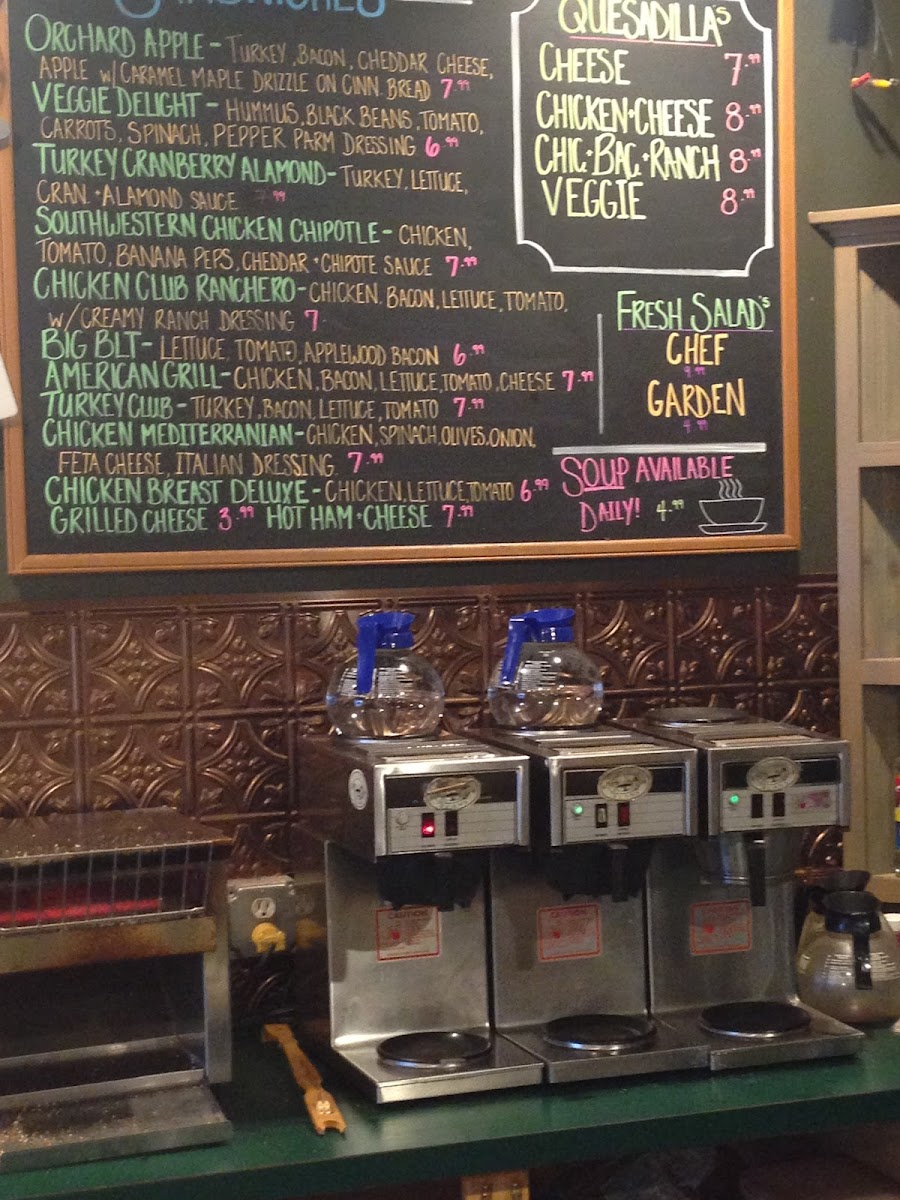 SANDWICHES
ORCHARD APPLE - TURKEY, BACON, CHEDDAR CHEESE,
APPLE W/ CARAMEL MAPLE DRIZZLE ON CINN. BREAD 7.99
VEGGIE DELIGHT - HUMMUS, BLACK BEANS, TOMATO,
CARROTS, SPINACH, PEPPER PARM DRESSING 6.99
TURKEY CRANBERRY ALAMOND - TURKEY, LETTUCE,
CRAN. + ALAMOND SAUCE 7.99
SOUTHWESTERN CHICKEN CHIPOTLE - CHICKEN,
TOMATO, BANANA PEPS, CHEDDAR + CHIPOTE SAUCE 7.99
CHICKEN CLUB RANCHERO - CHICKEN, BACON, LETTUCE, TOMATO,
W/ CREAMY RANCH DRESSING 7.
BIG BLT - LETTUCE, TOMATO, APPLEWOOD BACON 6.99
AMERICAN GRILL - CHICKEN, BACON, LETTUCE, TOMATO, CHEESE 7.99
TURKEY CLUB - TURKEY, BACON, LETTUCE, TOMATO 7.99
CHICKEN MEDITERRANIAN - CHICKEN, SPINACH, OLIVES, ONION,
FETA CHEESE, ITALIAN DRESSING. 7.99
CHICKEN BREAST DELUXE - CHICKEN, LETTUCE, TOMATO 6.99
GRILLED CHEESE 3.99 HOT HAM + CHEESE 7.99
QUESADILLA'S
CHEESE 7.99
CHICKEN + CHEESE 8.99
CHIC + BAC + RANCH 8.99
VEGGIE 8.99
FRESH SALAD'S
CHEF
9.99
GARDEN
4.99
SOUP AVAILABLE
DAILY! 4.99
CAUTION
CAUTION
CAUTION